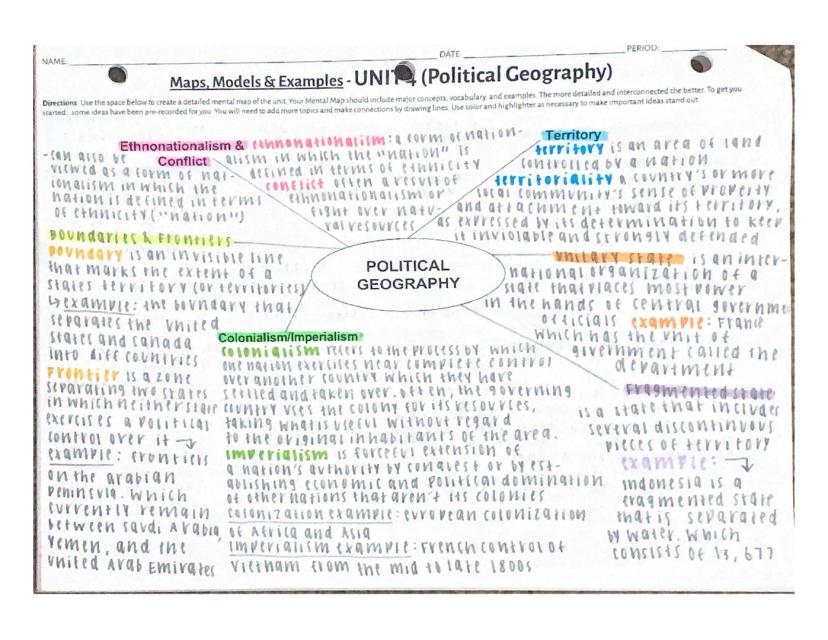 NAME: DATE: PERIOD:
Maps, Models & Examples - UNIT 4 (Political Geography)
Directions: Use the space below to create a detailed mental map of the unit. Your Mental Map should include major concepts, vocabulary, and examples. The more detailed and interconnected the better. To get you
started...some ideas have been pre-recorded for you. You will need to add more topics and make connections by drawing lines. Use color and highlighter as necessary to make important ideas stand out.
Ethnonationalism &
Conflict
ethnonationalism: a form of nation-
alism in which the "nation" is
defined in terms of ethnicity
conflict often a result of
ethnonationalism or
fight over natu-
ral resources
-can also be
viewed as a form of nat-
ionalism in which the
nation is defined in terms
of ethnicity ("nation")
Territory
territory is an area of land
controlled by a nation
territoriality a country's or more
local community's sense of property
and attachment toward its territory,
as expressed by its determination to keep
it inviolable and strongly defended
Boundaries & Frontiers
Boundary is an invisible line
that marks the extent of a
states territory (or territories)
↳ example: the boundary that
separates the United
States and Canada
into diff countries
Frontier is a zone
separating two states
in which neither state
exercises a political
control over it →
example: frontiers
on the arabian
Peninsula. Which
currently remain
between Saudi Arabia,
Yemen, and the
United Arab Emirates
POLITICAL
GEOGRAPHY
Unitary state is an inter-
national organization of a
state that places most power
in the hands of central governme
officials example: France
which has the unit of
government called the
department
Colonialism/Imperialism
colonialism refers to the process by which
one nation exercises near complete control
over another country which they have
settled and taken over. often, the governing
country uses the colony for its resources,
taking what is useful without regard
to the original inhabitants of the area.
imperialism is forceful extension of
a nation's authority by conquest or by est-
ablishing economic and political domination
of other nations that aren't its colonies
colonization example: european colonization
of Africa and Asia
Imperialism example: French control of
Vietnam from the mid to late 1800s
Fragmented state
is a state that includes
several discontinuous
pieces of territory
example: →
Indonesia is a
fragmented state
that is separated
by water. Which
consists of 13,677